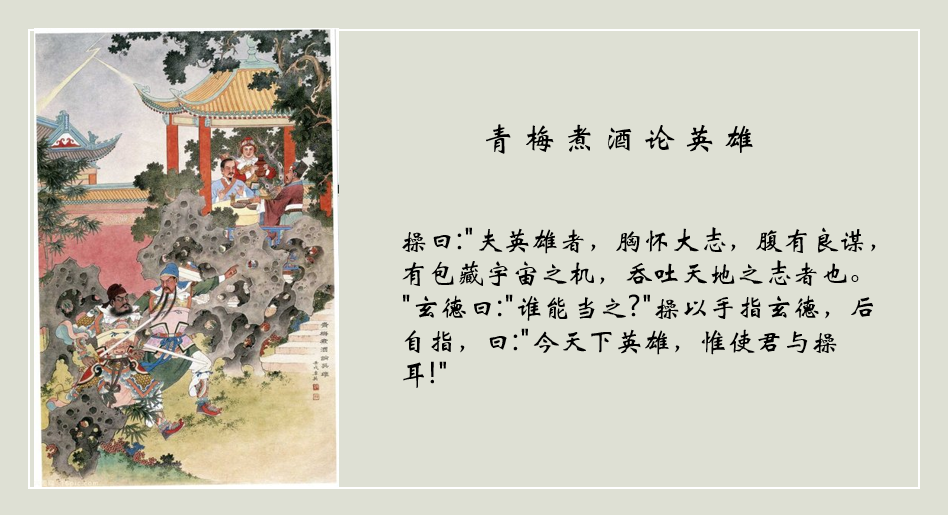 青梅煮酒论英雄
操曰:"夫英雄者，胸怀大志，腹有良谋，
有包藏宇宙之机，吞吐天地之志者也。
"玄德曰:"谁能当之?"操以手指玄德，后
自指，曰:"今天下英雄，惟使君与操
耳!"
青梅煮酒論英雄